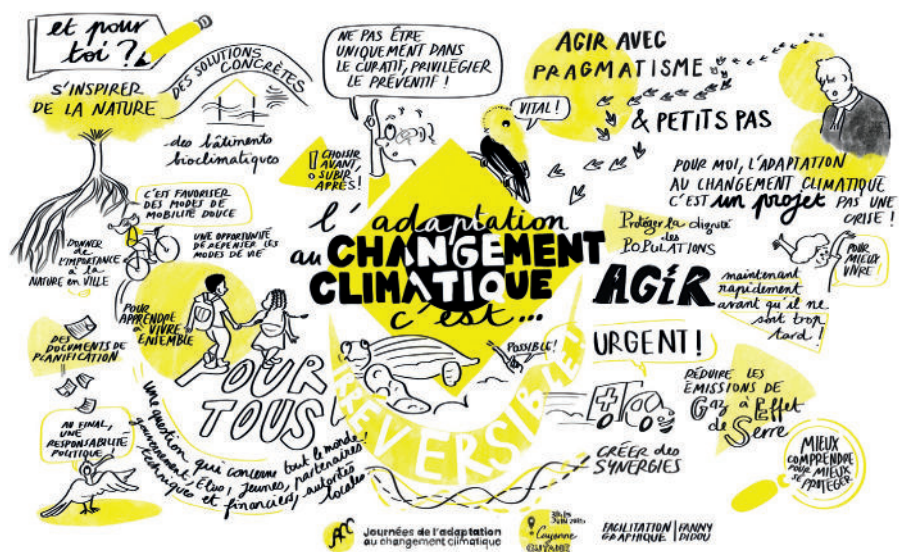 et pour
toi ?
S'INSPIRER
DE LA NATURE
DES SOLUTIONS
CONCRÈTES
des bâtiments
bioclimatiques
C'EST FAVORISER
DES MODES DE
MOBILITÉ DOUCE
UNE OPPORTUNITÉ
DE REPENSER LES
MODES DE VIE
DONNER
de
L'IMPORTANCE
à la
NATURE en VILLE
POUR
APPRENDRE
à VIVRE
ENSEMBLE
DES
DOCUMENTS DE
PLANIFICATION
AU FINAL,
UNE
RESPONSABILITÉ
POLITIQUE
POUR
TOUS !
Une question qui concerne tout le monde !
gouvernement, Élus, Jeunes, partenaires
techniques et financiers, autorités
locales
NE PAS ÊTRE
UNIQUEMENT DANS
LE CURATIF, PRIVILÉGIER
LE PRÉVENTIF !
CHOISIR
AVANT,
SUBIR
APRÈS !
VITAL !
l'adaptation
au CHANGEMENT
CLIMATIQUE
c'est...
POSSIBLE !
IRRÉVERSIBLE !
AGIR AVEC
PRAGMATISME
& PETITS PAS
POUR MOI, L'ADAPTATION
AU CHANGEMENT CLIMATIQUE
C'EST un projet PAS UNE
CRISE !
Protéger la dignité
des
POPULATIONS
POUR
MIEUX
VIVRE !
AGIR
maintenant
rapidement
avant qu'il ne
soit trop
tard !
URGENT !
RÉDUIRE LES
ÉMISSIONS DE
Gaz à Effet
de Serre
CRÉER des
SYNERGIES
MIEUX
COMPRENDRE
POUR MIEUX
SE PROTÉGER
Journées de l'adaptation
au changement climatique
Cayenne
GUYANE
FACILITATION
GRAPHIQUE
FANNY
DIDOU